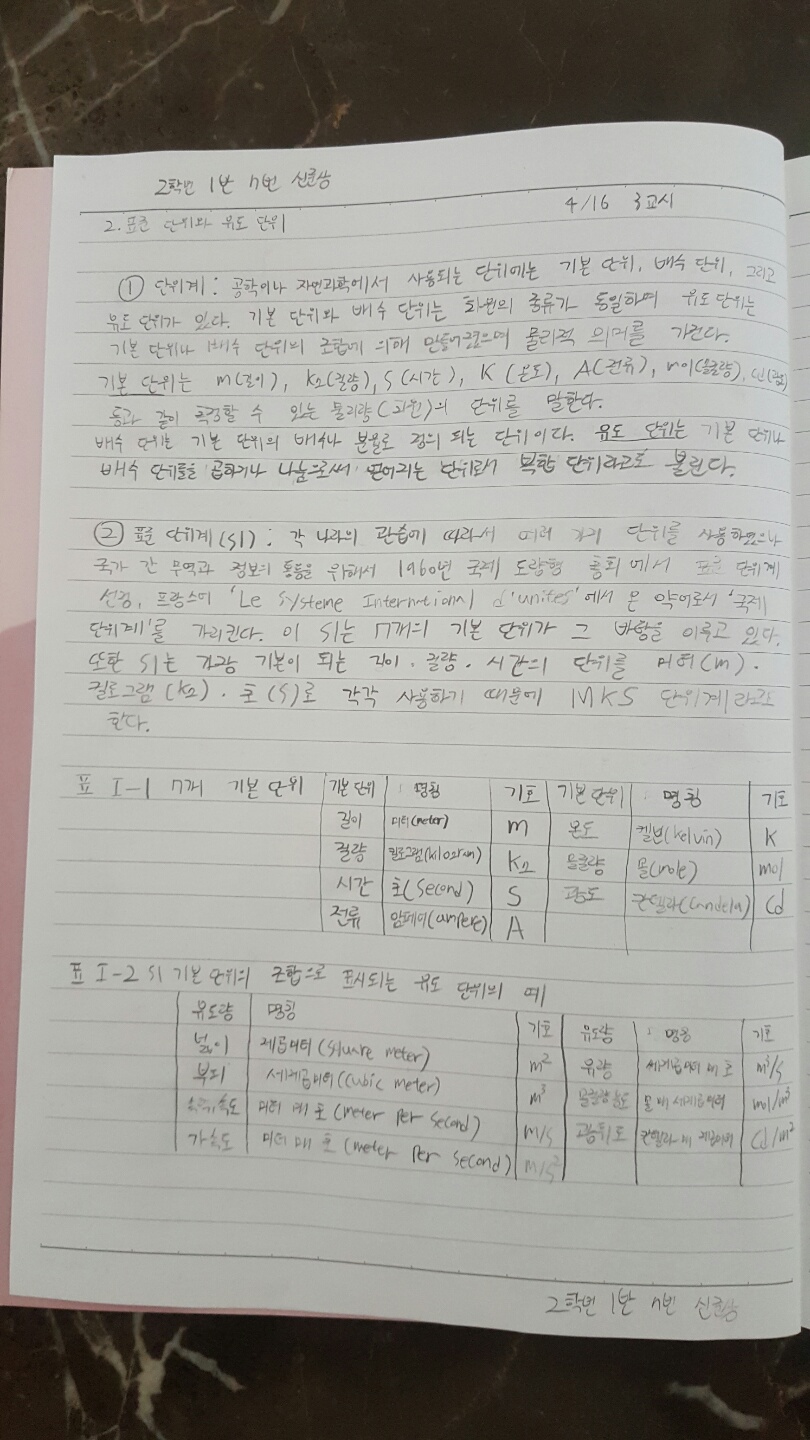 2학년 1반 7번 신
4/16 3교시
2. 표준 단위와 유도 단위
① 단위계 : 공학이나 자연과학에서 사용되는 단위에는 기본 단위, 배수 단위, 그리고
유도 단위가 있다. 기본 단위와 배수 단위는 차원의 종류가 동일하며 유도 단위는
기본 단위나 배수 단위의 조합에 의해 만들어졌으며 물리적 의미를 가진다.
기본 단위는 m(길이), kg(질량), S(시간), K(온도), A(전류), mol(물질량), cd(광도)
등과 같이 측정할 수 있는 물리량(차원)의 단위를 말한다.
배수 단위는 기본 단위의 배수나 분율로 정의 되는 단위이다. 유도 단위는 기본 단위나
배수 단위를 곱하거나 나눔으로써 얻어지는 단위로서 복합 단위라고도 불린다.
② 표준 단위계(SI) : 각 나라의 관습에 따라서 여러 가지 단위를 사용하였으나
국가 간 무역과 정보의 통용을 위해서 1960년 국제 도량형 총회에서 표준 단위계
선정, 프랑스어 'Le Systeme International d'unites'에서 온 약어로서 '국제
단위계'를 가리킨다. 이 SI는 7개의 기본 단위가 그 바탕을 이루고 있다.
또한 SI는 가장 기본이 되는 길이·질량·시간의 단위를 미터(m)·
킬로그램(kg)·초(S)로 각각 사용하기 때문에 MKS 단위계라고도
한다.
표 I-1 7개 기본 단위 기본단위 명칭 기호 기본단위 명칭 기호
길이 미터(meter) m 온도 켈빈(kelvin) K
질량 킬로그램(kilogram) kg 물질량 몰(mole) mol
시간 초(Second) S 광도 칸델라(Candela) Cd
전류 암페어(ampere) A
표 I-2 SI 기본 단위의 조합으로 표시되는 유도 단위의 예
유도량 명칭 기호 유도량 명칭 기호
넓이 제곱미터(Square meter) m² 유량 세제곱미터 매 초 m³/s
부피 세제곱미터(Cubic meter) m³ 물질량 농도 몰 매 세제곱미터 mol/m³
속도 미터 매 초(meter Per Second) m/s 광휘도 칸델라 매 제곱미터 Cd/m²
가속도 미터 매 초(meter Per Second) m/s²
2학년 1반 7번 신